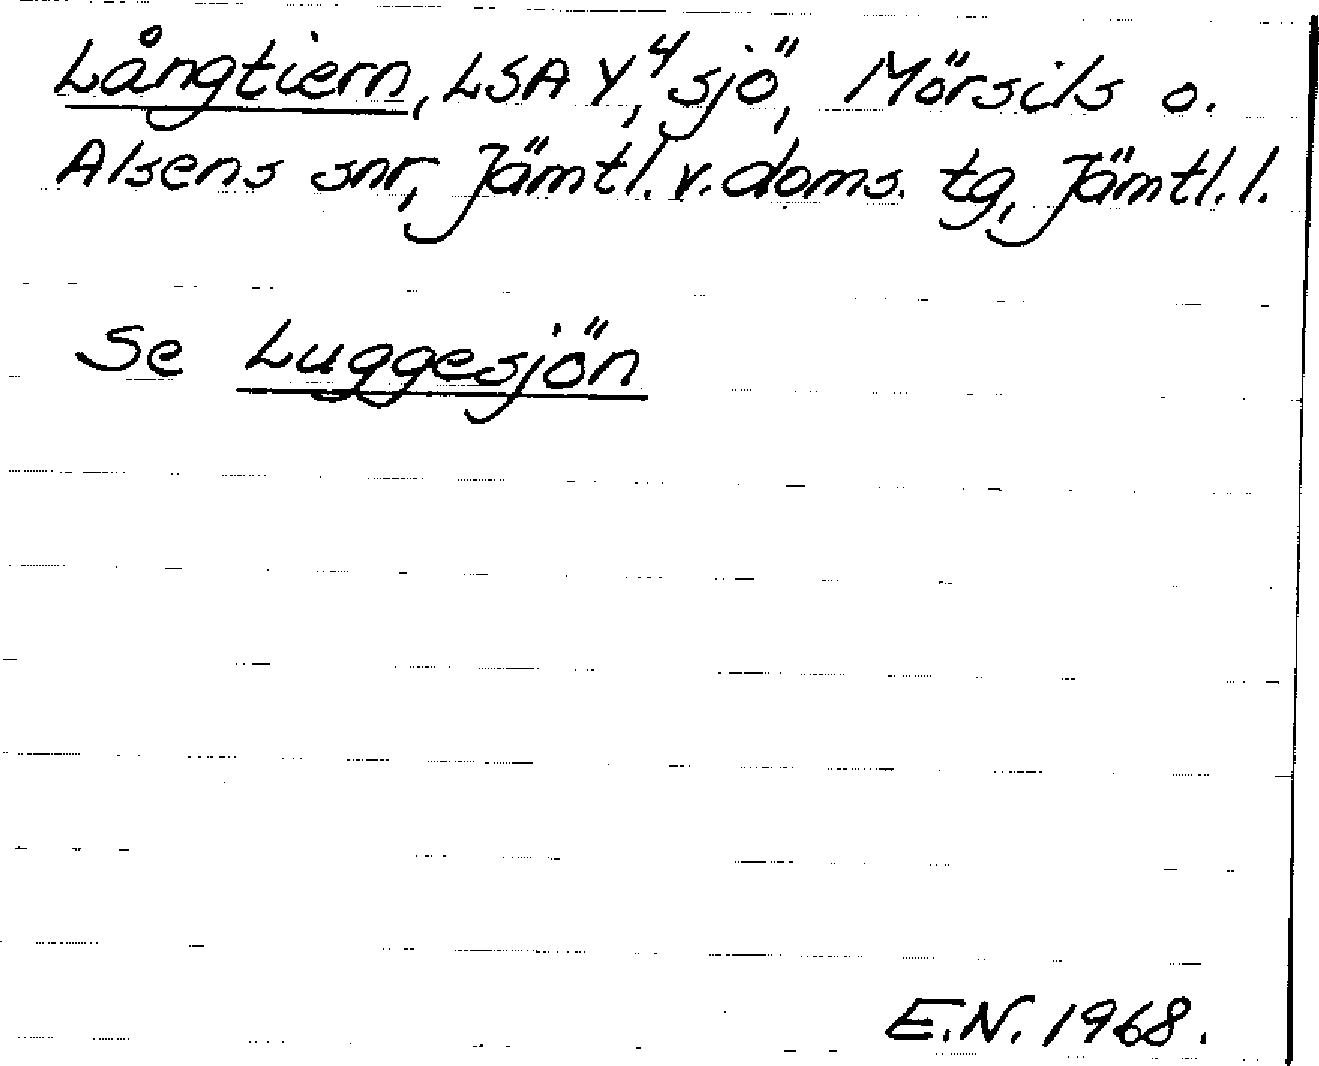 Långtiern, LSA Y⁴, sjö, Mörsils o.
Alsens snr, Jämtl. v. doms. tg, Jämtl. l.
Se Luggesjön
E.N. 1968.